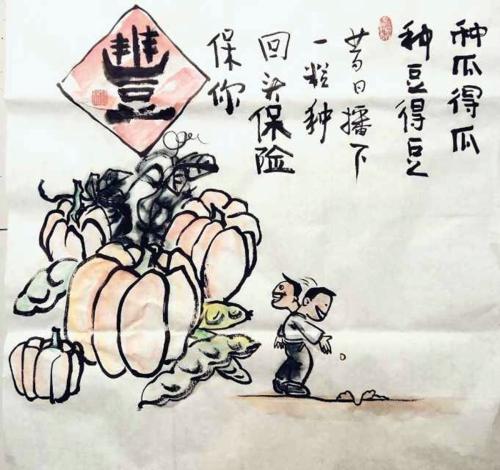 种瓜得瓜
种豆得豆
昔日播下
一粒种
回头保险
保你
豐